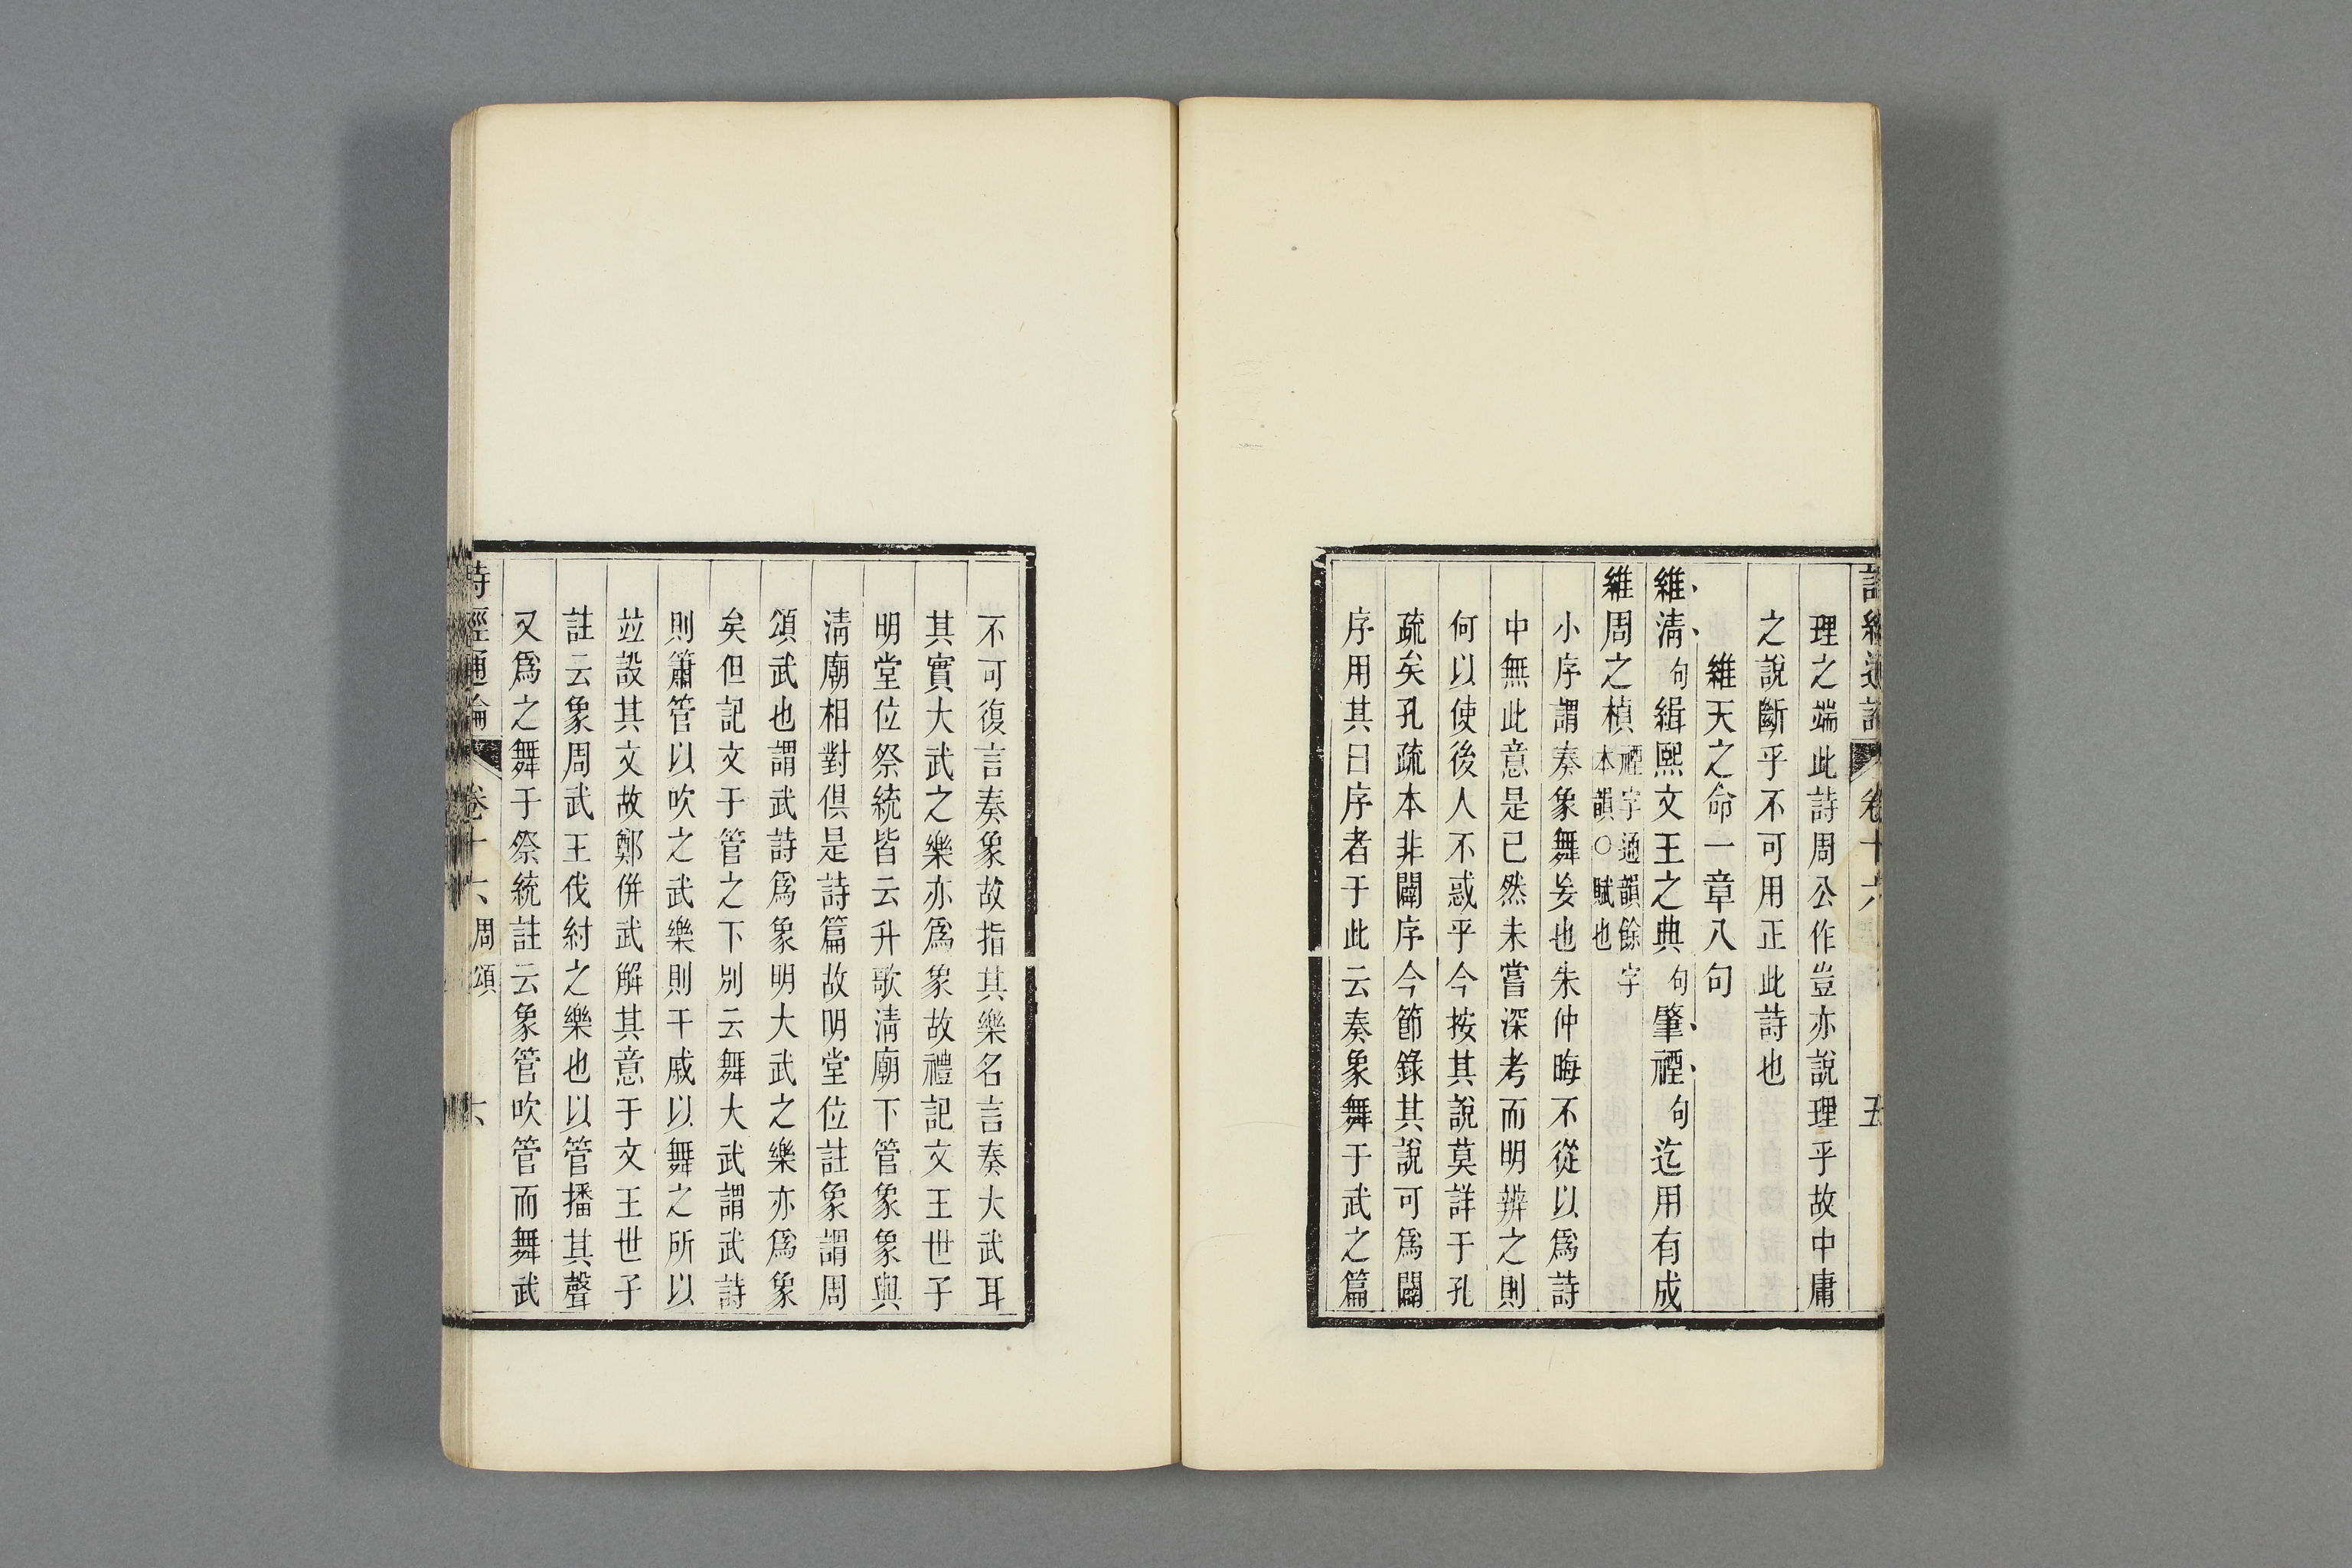 詩經通論 卷十六 五
理之端此詩周公作豈亦說理乎故中庸
之說斷乎不可用正此詩也
維天之命一章八句
維清句緝熙文王之典句肇禋句迄用有成
維周之楨禋字通韻餘字本韻○賦也
小序謂奏象舞妄也朱仲晦不從以爲詩
中無此意是已然未嘗深考而明辨之則
何以使後人不惑乎今按其說莫詳于孔
疏矣孔疏本非闢序今節錄其說可爲闢
序用其曰序者于此云奏象舞于武之篇
不可復言奏象故指其樂名言奏大武耳
其實大武之樂亦爲象故禮記文王世子
明堂位祭統皆云升歌淸廟下管象象與
淸廟相對俱是詩篇故明堂位註象謂周
頌武也謂武詩爲象明大武之樂亦爲象
矣但記文于管之下別云舞大武謂武詩
則簫管以吹之武樂則干戚以舞之所以
竝設其文故鄭併武解其意于文王世子
註云象周武王伐紂之樂也以管播其聲
又爲之舞于祭統註云象管吹管而舞武
詩經通論 卷十六 周頌 六